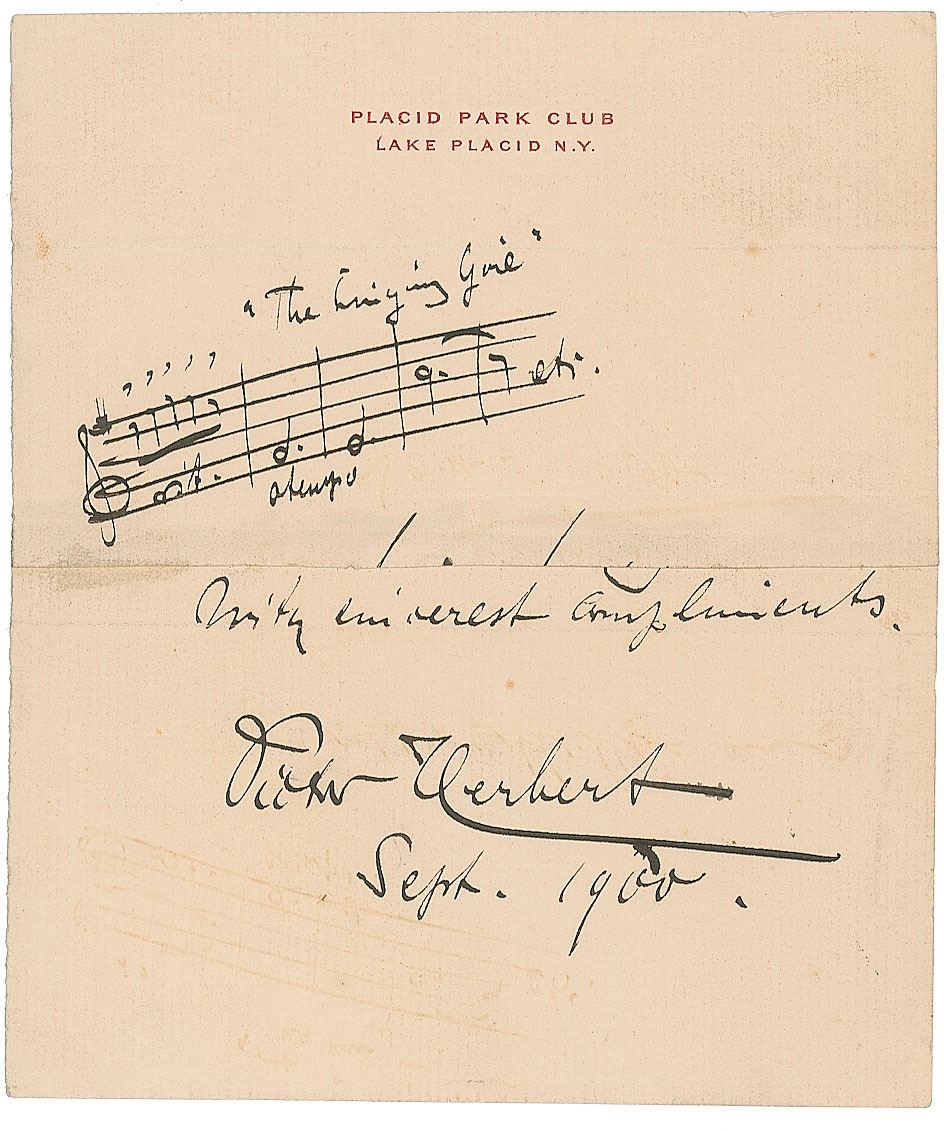 PLACID PARK CLUB
LAKE PLACID N.Y.
"The Singing Girl"
etc.
rit.
a tempo
With sincerest compliments.
Victor Herbert
Sept. 1900.